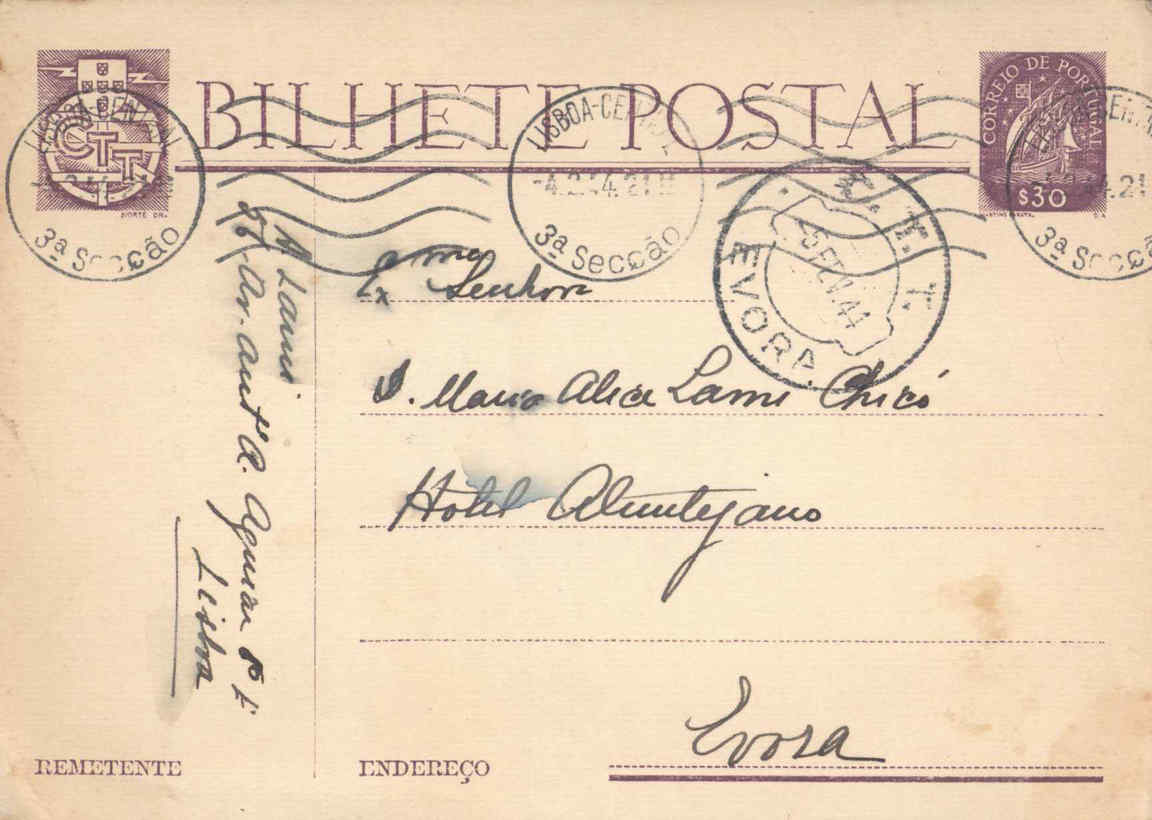 BILHETE POSTAL
CTT
NORTE DR.
CORREIO DE PORTUGAL
$30
MARTINS BARATA
LISBOA-CENTRAL
3ª Secção
LISBOA-CENTRAL
-4.2.44.21
3ª Secção
LISBOA-CENTRAL
4.21
3ª Secção
C.T.T.
5 FEV 44
EVORA
Exma
Senhora
D. Maria Alice Lami Chicó
Hotel Alentejano
Evora
A Lami
Av. Antº A. Aguiar
Lisboa
REMETENTE
ENDEREÇO